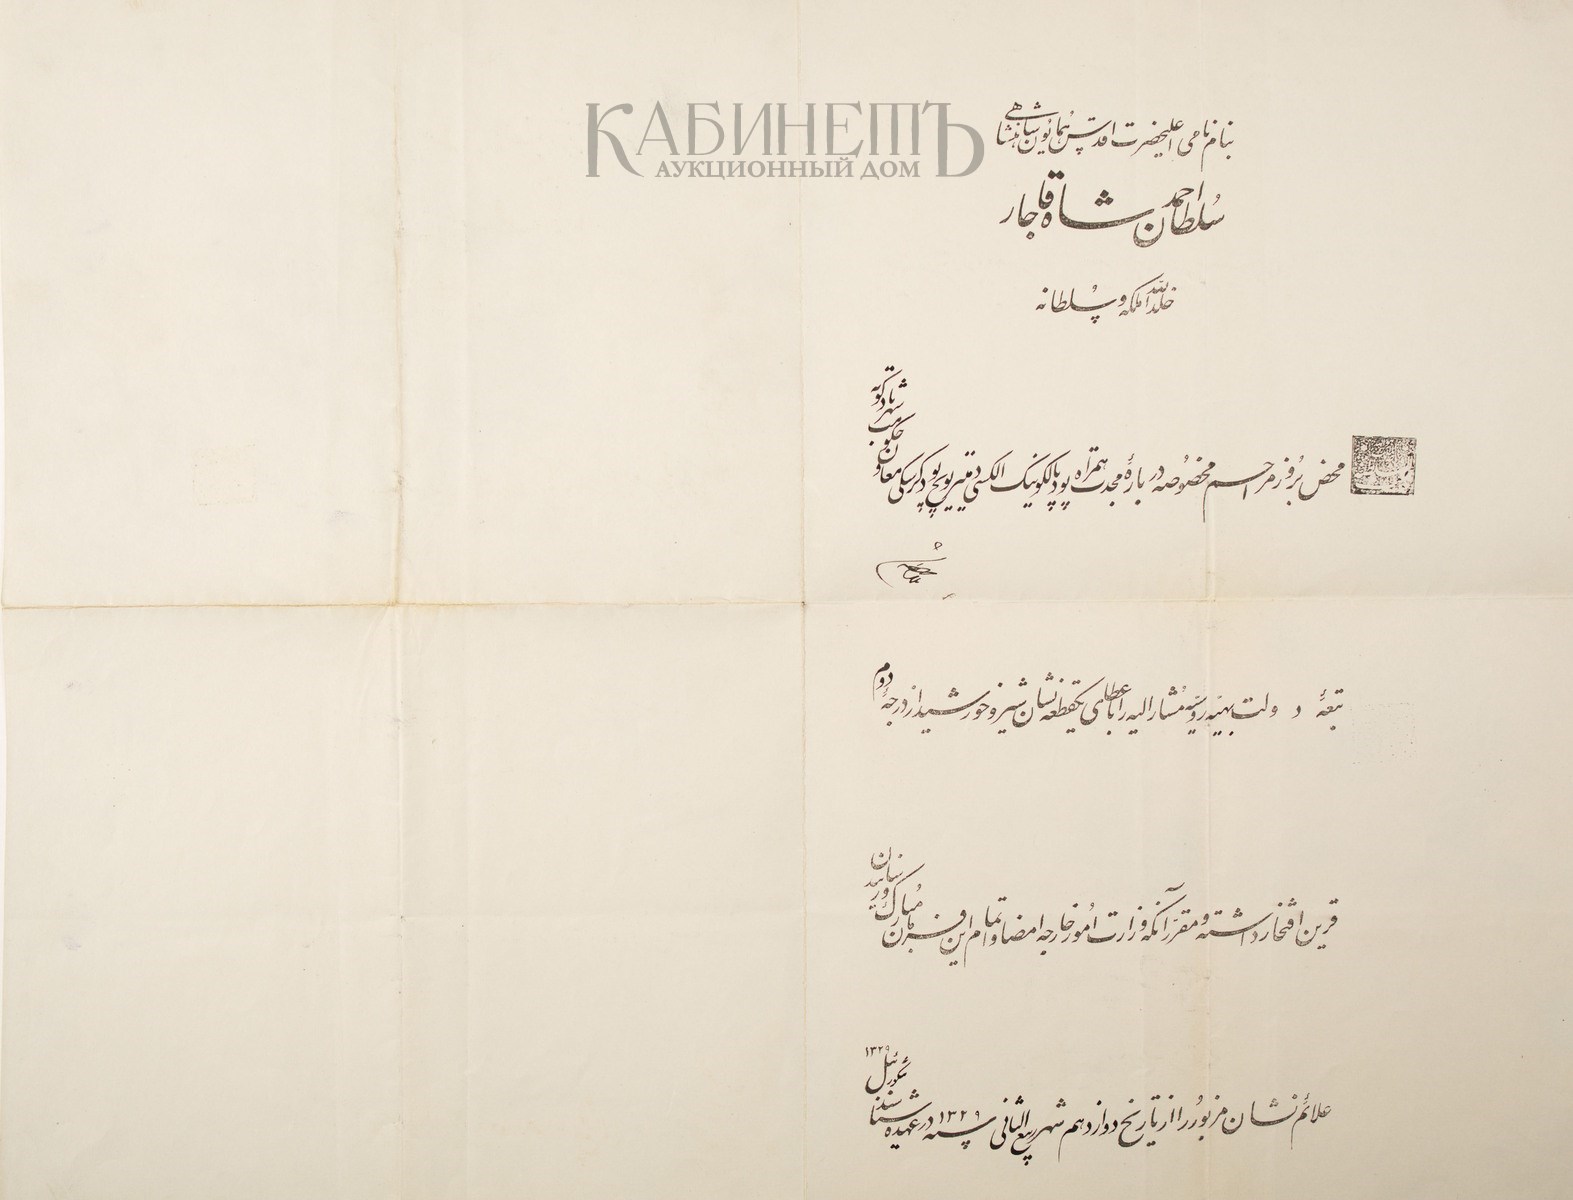 КАБИНЕТЪ
АУКЦИОННЫЙ ДОМ
بنام نامی اعلیحضرت اقدس همایون شاهنشاهی
سلطان احمد شاه قاجار
خلد الله ملکه و سلطانه
محض بروز مراحم مخصوصه در بارهٔ مجدت همراه پودپالکونیک الکسی دمیتریویچ پودگرسکی معاون حکومت شهر بادکوبه
تبعهٔ دولت بهیه روسیه مشارالیه را باعطای یکقطعه نشان شیر و خورشید از درجهٔ دوم
قرین افتخار داشته و مقرر آنکه وزارت امور خارجه امضا و اتمام این فرمان مبارک و رسانیدن
علائم نشان مزبور را از تاریخ دوازدهم شهر ربیع الثانی سنه ١٣٢٩ در عهده شناسند تنگوزئیل ١٣٢٩